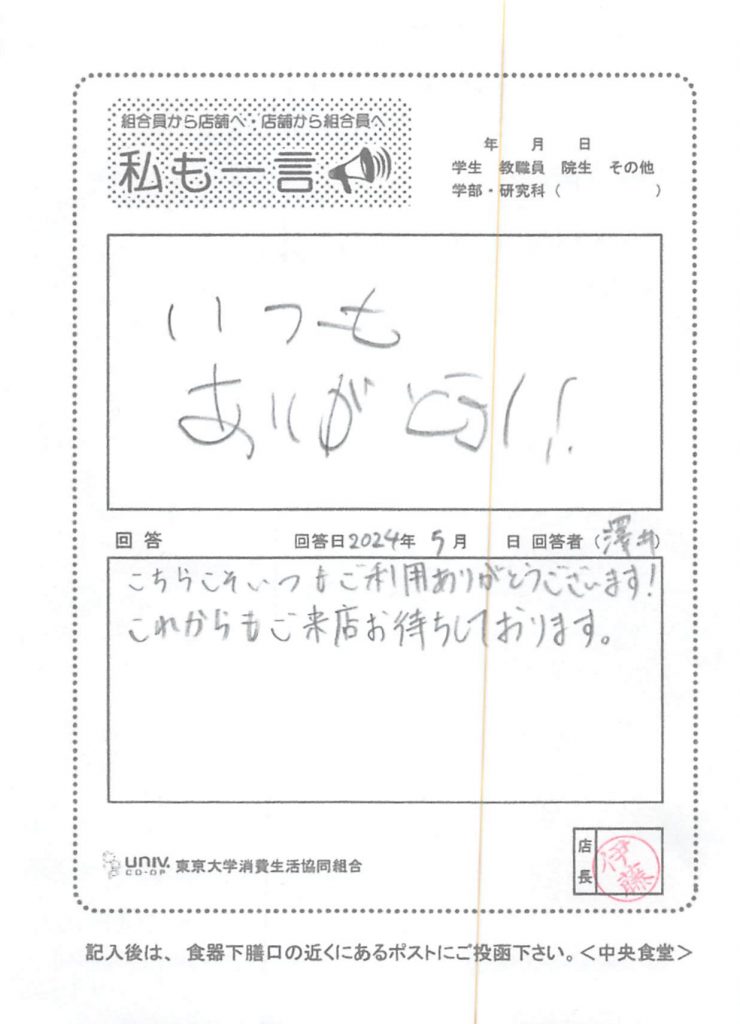 組合員から店舗へ・店舗から組合員へ
私も一言
年 月 日
学生 教職員 院生 その他
学部・研究科（ ）
いつも
ありがとう!!
回答 回答日2024年 5月 日 回答者（澤井）
こちらこそいつもご利用ありがとうございます!
これからもご来店お待ちしております。
UNIV. CO-OP 東京大学消費生活協同組合
店長 伊藤
記入後は、食器下膳口の近くにあるポストにご投函下さい。＜中央食堂＞